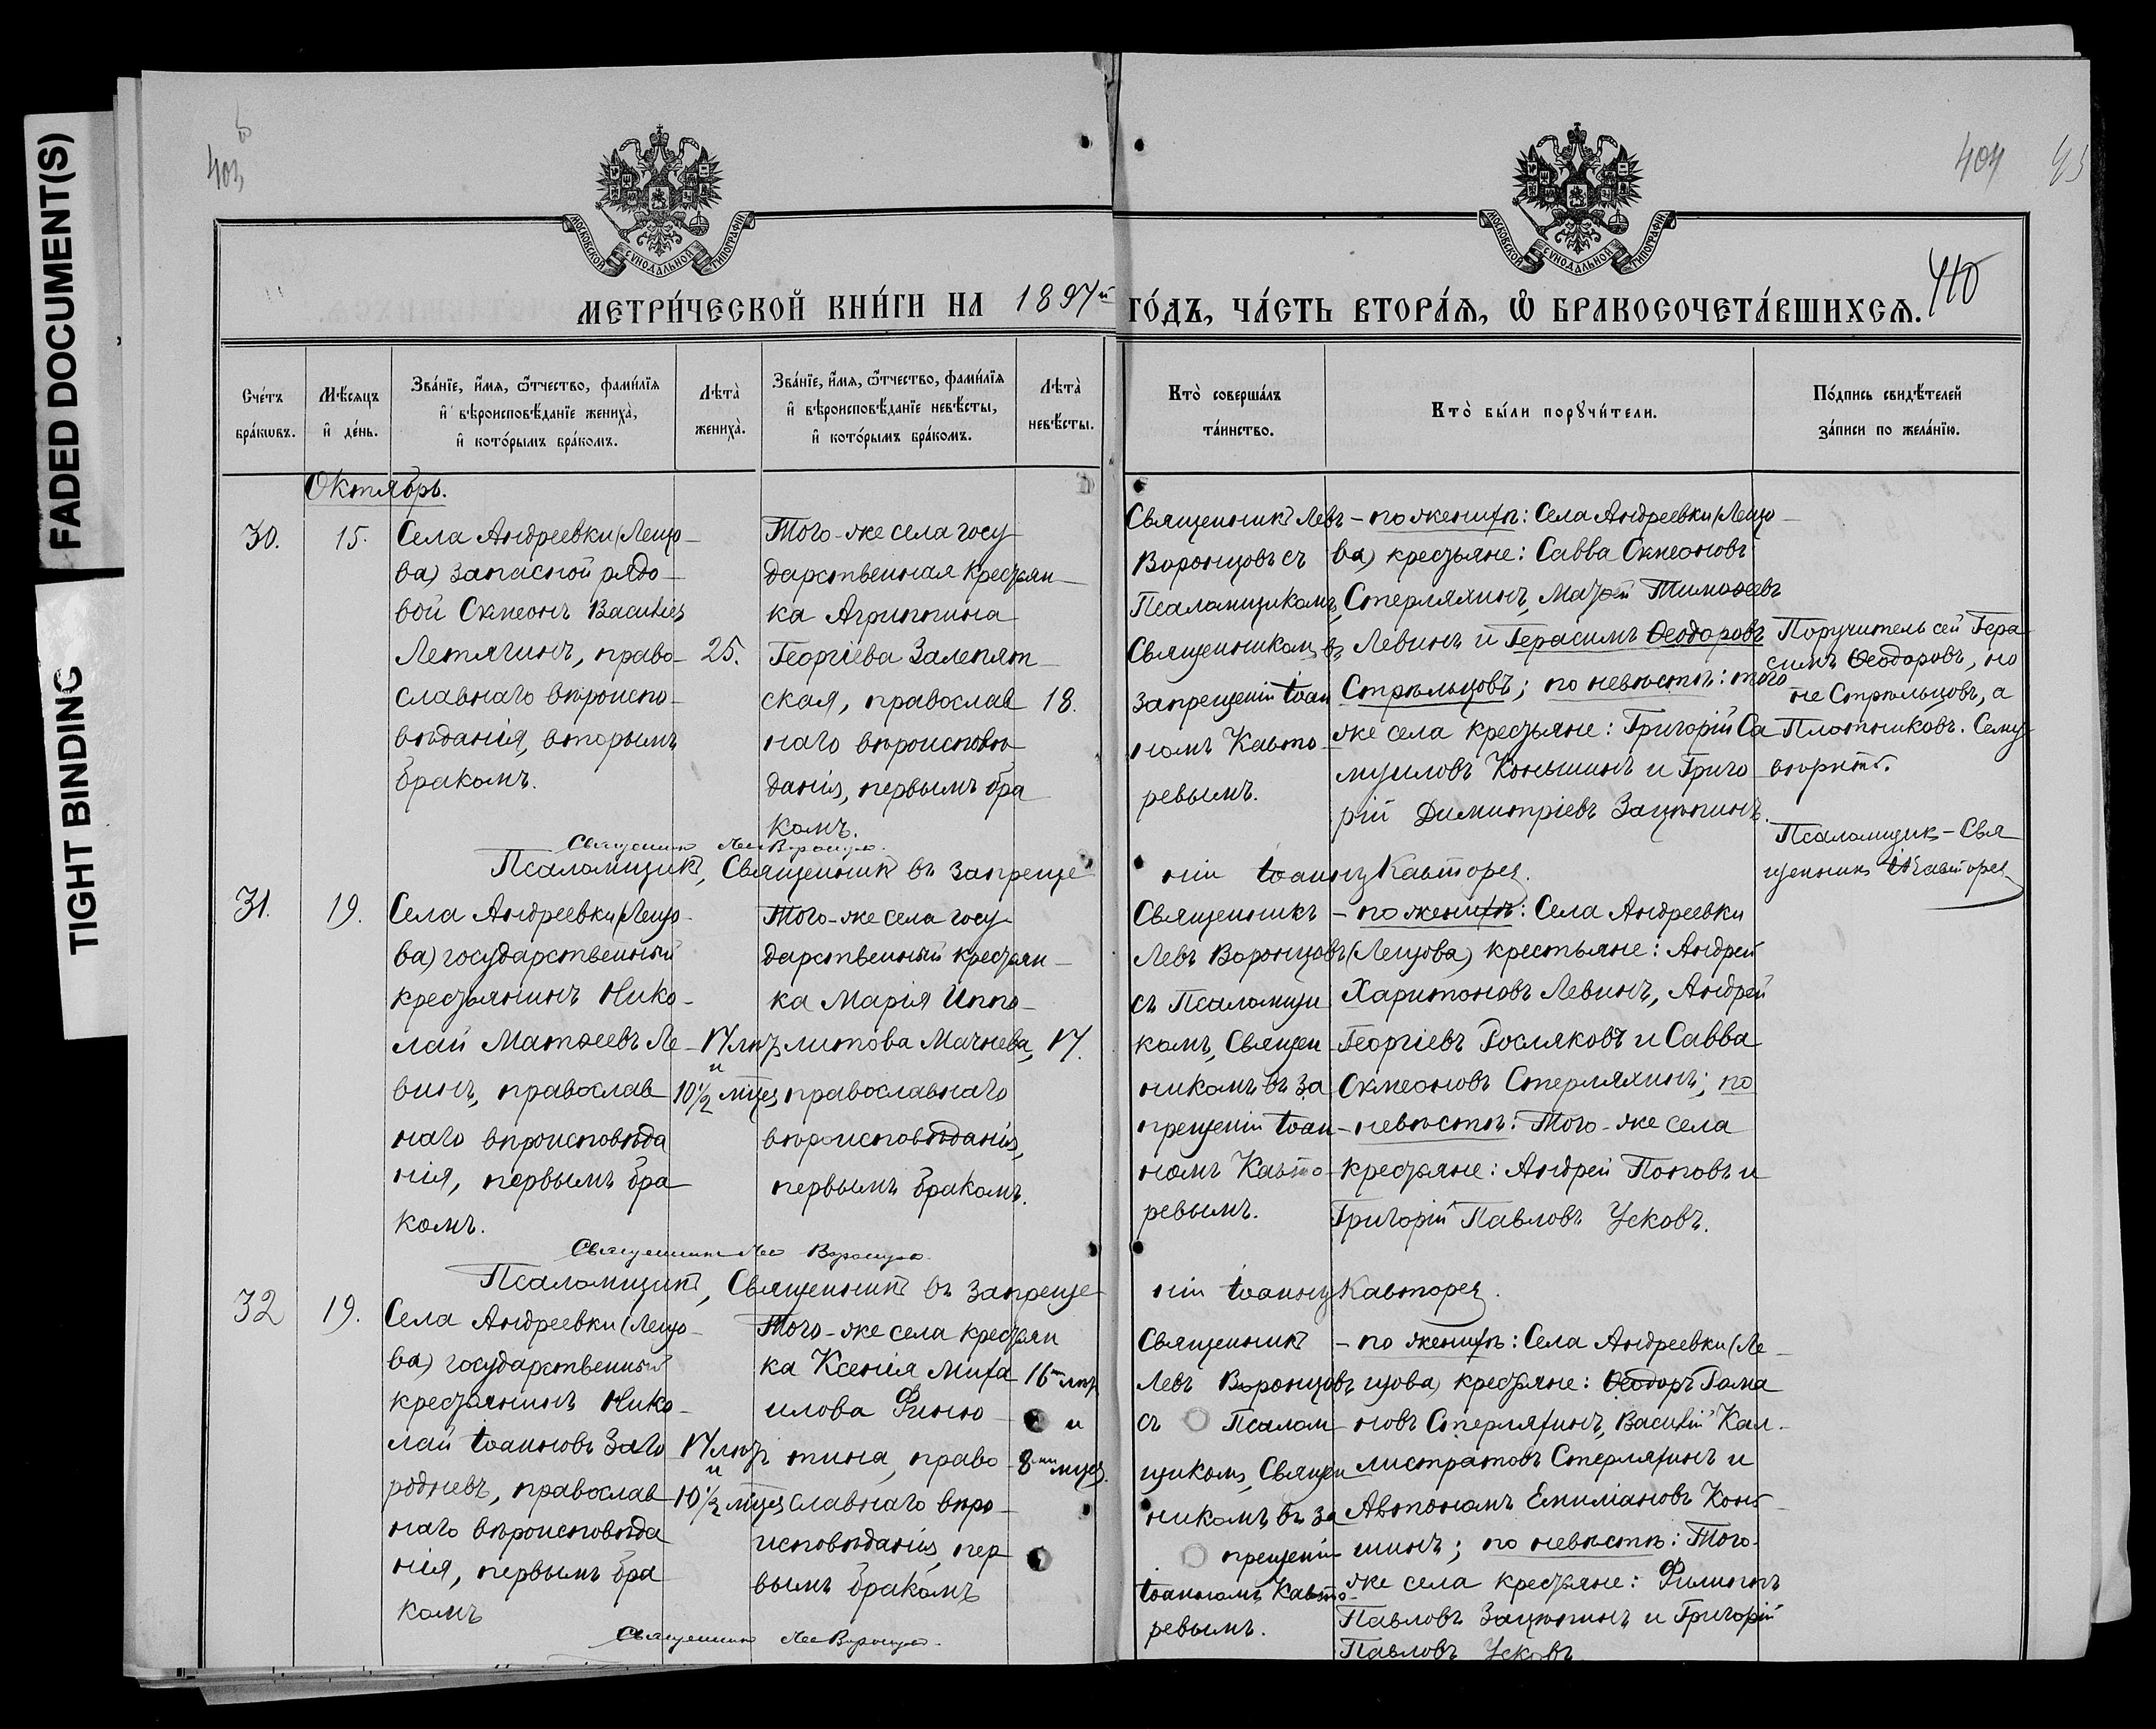 FADED DOCUMENT(S)
TIGHT BINDING
403
404
410
МОСКОВСКОЙ СѴНОДАЛЬНОЙ ТИПОГРАФІИ
МОСКОВСКОЙ СѴНОДАЛЬНОЙ ТИПОГРАФІИ
МЕТРИ́ЧЕСКОЙ КНИ́ГИ НА 1897й ГО́ДЪ, ЧА́СТЬ ВТОРА́Ѧ, Ѡ҆ БРАКОСОЧЕТА́ВШИХСѦ.
Сче́тъ бра́кѡвъ.
Мѣ́сяцъ и҆ де́нь.
Зва́нїе, и҆́мя, ѻ҆́тчество, фами́лїя и҆ вѣроисповѣ́данїе жениха̀, и҆ кото́рымъ бра́комъ.
Лѣта̀ жениха̀.
Зва́нїе, и҆́мя, ѻ҆́тчество, фами́лїя и҆ вѣроисповѣ́данїе невѣ́сты, и҆ кото́рымъ бра́комъ.
Лѣта̀ невѣ́сты.
Кто̀ соверша́лъ та́инство.
Кто̀ бы́ли порꙋчи́тели.
По́дпись свидѣ́телей за́писи по жела́нїю.
Октябрь.
30.
15.
Села Андреевки (Лещо-
ва) запасной рядо-
вой Сѵмеонъ Васильев
Летягинъ, право-
славнаго вѣроиспо-
вѣданія, вторымъ
бракомъ.
25.
Того-же села госу-
дарственная крестьян-
ка Агриппина
Георгіева Залепят-
ская, православ-
наго вѣроисповѣ-
данія, первымъ бра
комъ.
18.
Священникъ Левъ
Воронцовъ съ
Псаломщикомъ,
Священникомъ въ
запрещеніи Іоан
номъ Кавто-
ревымъ.
– по женихѣ: Села Андреевки (Лещо-
ва) крестьяне: Савва Сѵмеоновъ
Стерляхинъ, Матѳей Тимоѳеевъ
Левинъ и Герасимъ Ѳеодоровъ
Стрѣльцовъ; по невѣстѣ: того
же села крестьяне: Григорій Са-
муиловъ Коньшинъ и Григо
рій Димитріевъ Зацѣпинъ.
Поручитель сей Гера-
симъ Ѳеодоровъ, но
не Стрѣльцовъ, а
Плотниковъ. Сему
вѣрить.
Псаломщик – Свя
щенникъ І. Кавторев
Священникъ Лев Воронцов.
Псаломщикъ, Священникъ въ запреще
ніи Іоаннъ Кавторев.
31.
19.
Села Андреевки (Лещо-
ва) государственный
крестьянинъ Нико-
лай Матѳеевъ Ле-
винъ, православ
наго вѣроисповѣда
нія, первымъ бра
комъ.
17 лѣтъ
и
10½ мѣсц.
Того-же села госу-
дарственный крестьян-
ка Марія Иппо-
литова Мачнева,
православнаго
вѣроисповѣданія,
первымъ бракомъ.
17.
Священникъ
Левъ Воронцовъ
съ Псаломщи
комъ, Священ
никомъ въ за
прещеніи Іоан-
номъ Кавто-
ревымъ.
– по женихѣ: Села Андреевки
(Лещова) крестьяне: Андрей
Харитоновъ Левинъ, Андрей
Георгіевъ Росляковъ и Савва
Сѵмеоновъ Стерляхинъ; по
невѣстѣ: Того-же села
крестьяне: Андрей Поповъ и
Григорій Павловъ Усковъ.
Священникъ Лев Воронцов
Псаломщикъ, Священникъ въ запреще
ніи Іоаннъ Кавторев.
32
19.
Села Андреевки (Лещо-
ва) государственный
крестьянинъ Нико-
лай Іоанновъ Заго
родневъ, православ
наго вѣроисповѣда
нія, первымъ бра
комъ
17 лѣтъ
и
10½ мѣсц.
Того-же села крестьян
ка Ксенія Миха
илова Финю-
тина, право
славнаго вѣро-
исповѣданія, пер
вымъ бракомъ
16ть лѣт.
и
8ми мѣсц.
Священникъ
Левъ Воронцовъ
съ Псалом
щикомъ, Священ
никомъ въ за
прещеніи
Іоанномъ Кавто-
ревымъ.
– по женихѣ: Села Андреевки (Ле-
щова) крестьяне: Ѳеодоръ Рома
новъ Стерляхинъ, Василій Кал-
листратовъ Стерляхинъ и
Автономъ Емиліановъ Конь-
шинъ; по невѣстѣ: Того-
же села крестьяне: Филиппъ
Павловъ Зацѣпинъ и Григорій
Павловъ Усковъ
Священникъ Лев Воронцов.